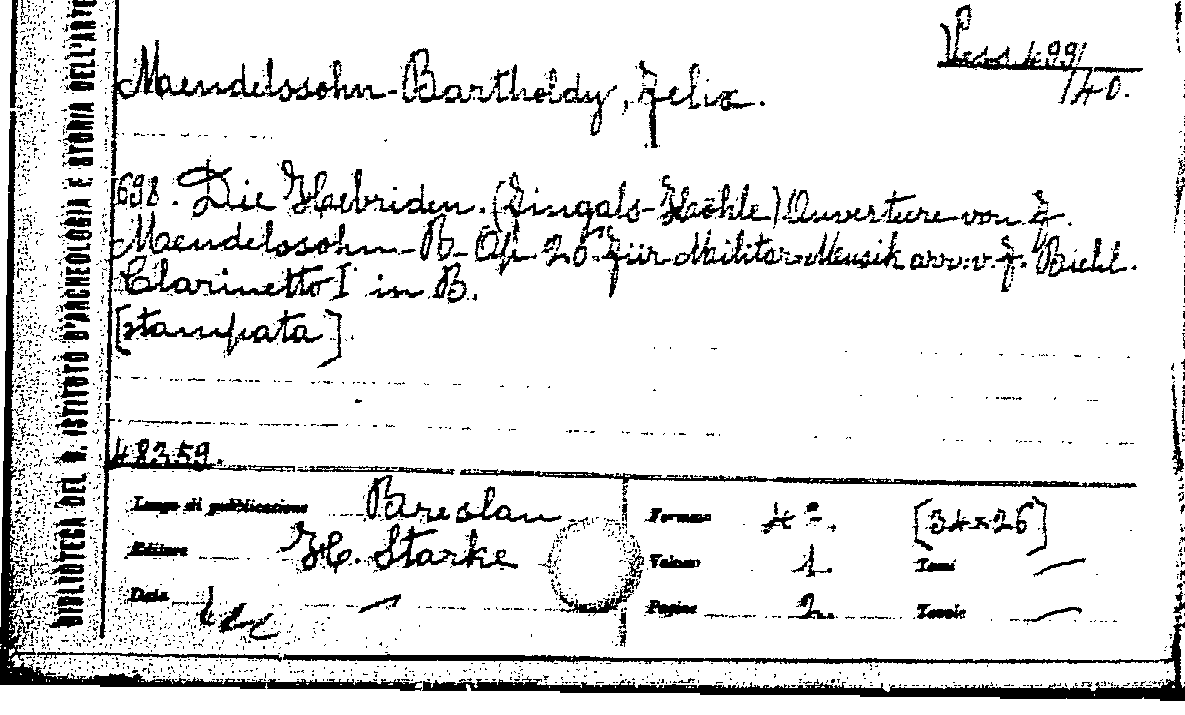 BIBLIOTECA DEL R. ISTITUTO D'ARCHEOLOGIA E STORIA DELL'ARTE
Vess. 499/
/40.
Maendelssohn-Bartholdy, Felix.
698. Die Hebriden. (Fingals-Höhle) Ouverture von F.
Maendelssohn-B. Op. 26 für Militar-Musik arr. v. F. Biehl.
Clarinetto I in B.
[stampata].
48259.
Luogo di pubblicazione Bareslau
Editore H. Starke
Data
Formato 4º. [34×26]
Volumi 1. Tomi —
Pagine 2. Tavole —